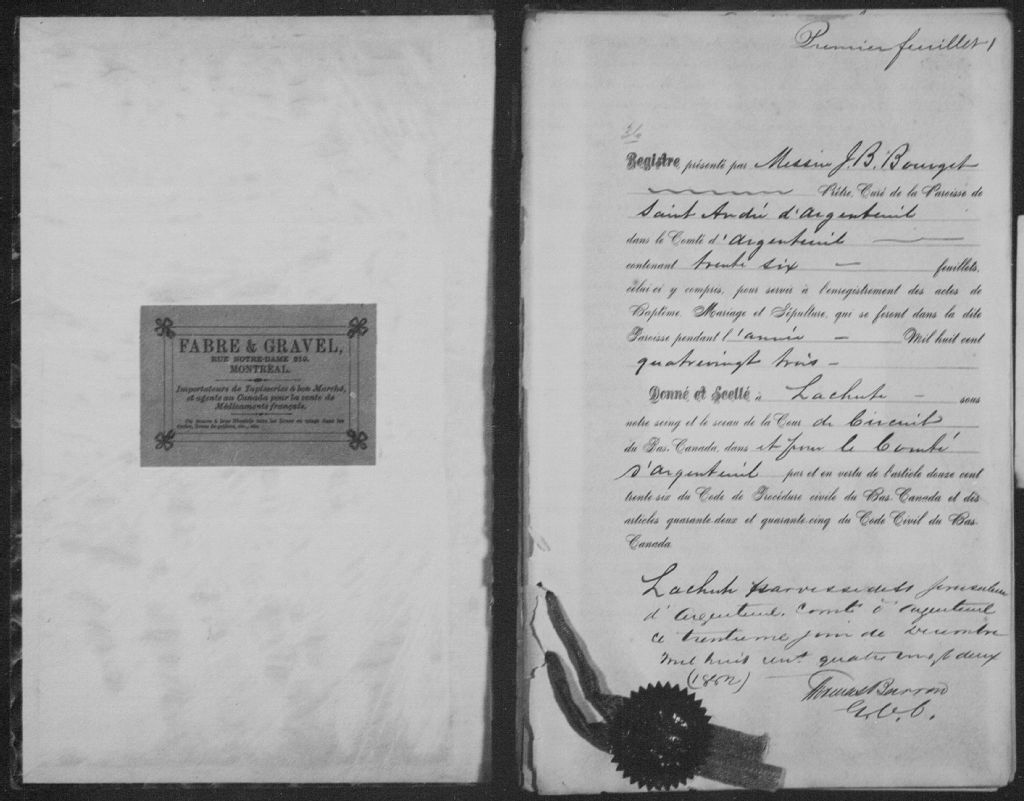 FABRE & GRAVEL,
RUE NOTRE-DAME 219.
MONTRÉAL.
Importateurs de Tapisseries à bon Marché,
et agents au Canada pour la vente de
Médicaments français.
Premier feuillet 1
Registre présenté par Messire J. B. Bourget
Prêtre, Curé de la Paroisse de
Saint André d'Argenteuil
dans le Comté d'Argenteuil
contenant trente six feuillets,
celui-ci y compris, pour servir à l'enregistrement des actes de
Baptême, Mariage et Sépulture, qui se feront dans la dite
Paroisse pendant l'année Mil huit cent
quatrevingt trois
Donné et Scellé à Lachute sous
notre seing et le sceau de la Cour de Circuit
du Bas-Canada, dans et pour le Comté
d'Argenteuil par et en vertu de l'article douze cent
trente-six du Code de Procédure civile du Bas-Canada et des
articles quarante-deux et quarante-cinq du Code Civil du Bas-
Canada
Lachute paroisse de St Jerusalem
d'Argenteuil, Comté d'Argenteuil
ce trentieme jour de Decembre
mil huit cent quatre vingt deux
(1882)
Thomas Barron
G.C.C.